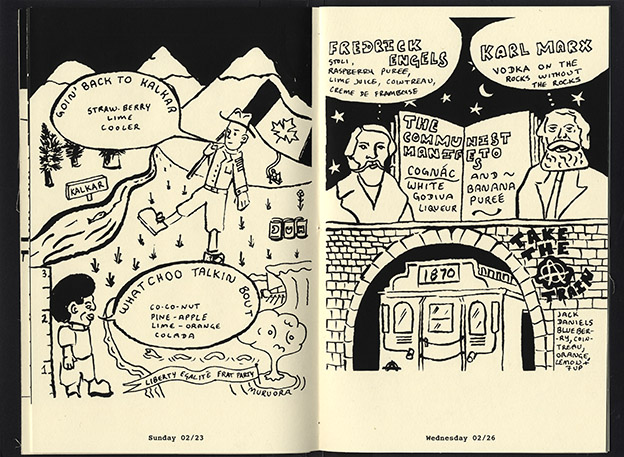 GOIN' BACK TO KALKAR
STRAW-BERRY
LIME
COOLER
KALKAR
DUM
3.
2.
1.
WHATCHOO TALKIN BOUT
CO-CO-NUT
PINE-APPLE
LIME-ORANGE
COLADA
LIBERTY EGALITÉ FRAT PARTY
MURUORA
Sunday 02/23
FREDRICK
ENGELS
STOLI,
RASPBERRY PUREÉ,
LIME JUICE, COINTREAU,
CREME DE FRAMBOISE
KARL MARX
VODKA ON THE
ROCKS WITHOUT
THE ROCKS
THE
COMMUNIST
MANIFETO
S
COGNÁC
WHITE
GODIVA
LIQUEUR
AND~
BANANA
PUREÉ
1870
TAKE
THE
A
TRAIN
JACK
DANIELS
BLUEBER-
RY, COIN-
TREAU,
ORANGE,
LEMON +
7UP
Wednesday 02/26